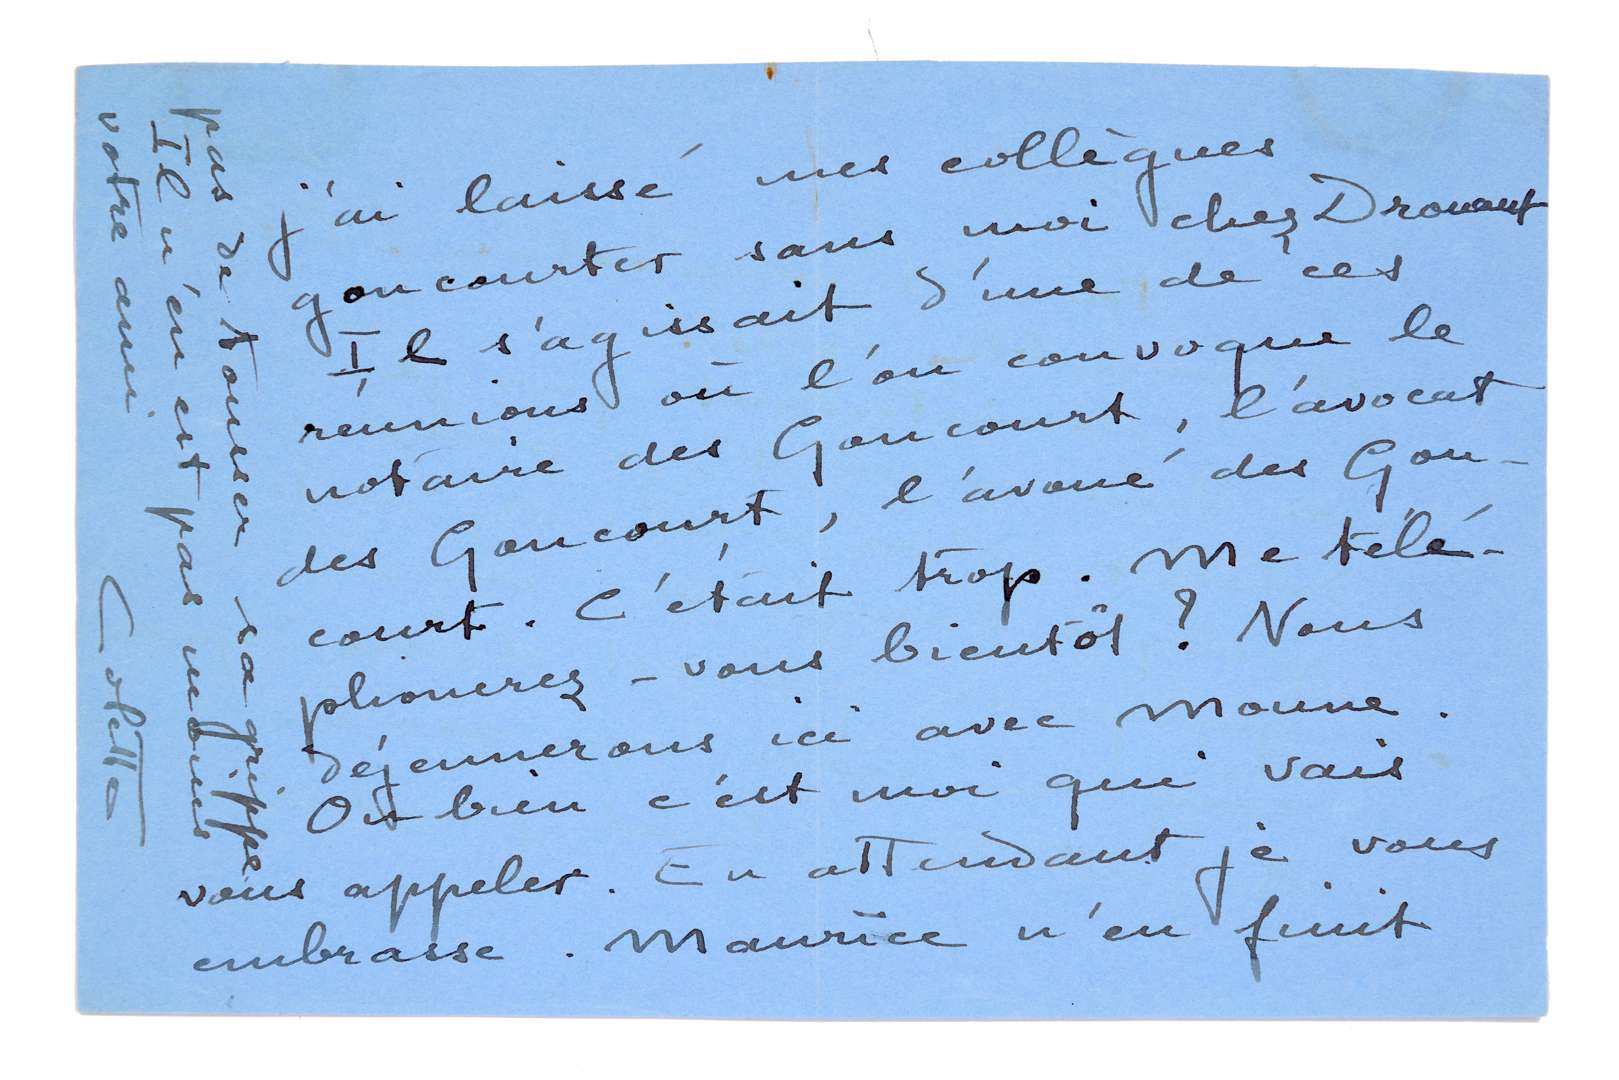 j'ai laissé mes collègues
goncourter sans moi chez Drouant
Il s'agissait d'une de ces
réunions où l'on convoque le
notaire des Goncourt, l'avocat
des Goncourt, l'avoué des Gon-
court. C'était trop. Me télé-
phonerez-vous bientôt ? Nous
déjeunerons ici avec Moune.
Ou bien c'est moi qui vais
vous appeler. En attendant je vous
embrasse. Maurice n'en finit
pas de tousser sa grippe
Il n'en est pas moins
votre ami.
Colette